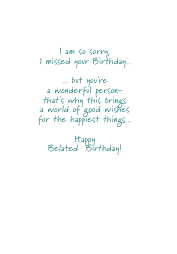 I am so sorry,
I missed your Birthday..
... but you're
a wonderful person-
that's why this brings
a world of good wishes
for the happiest things...
Happy
Belated Birthday!